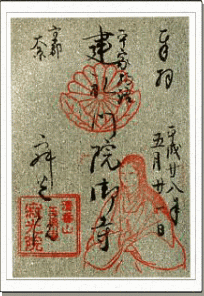 奉拝
平成廿八年
五月廿一日
平家物語
建礼門院御寺
京都
大原
寂光院
清香山
寂光院